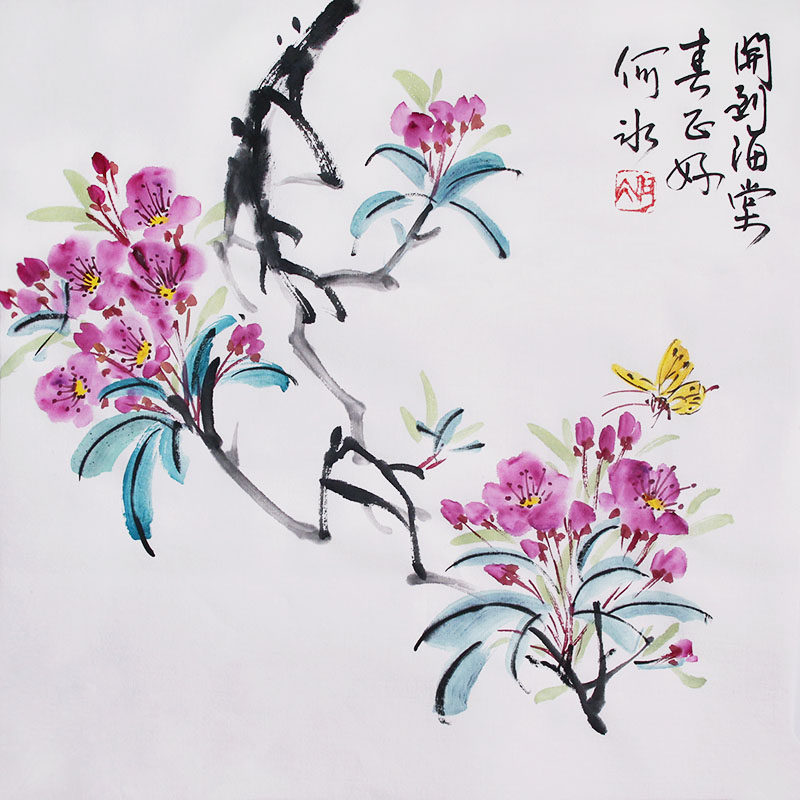 開到海棠
春正好
何冰